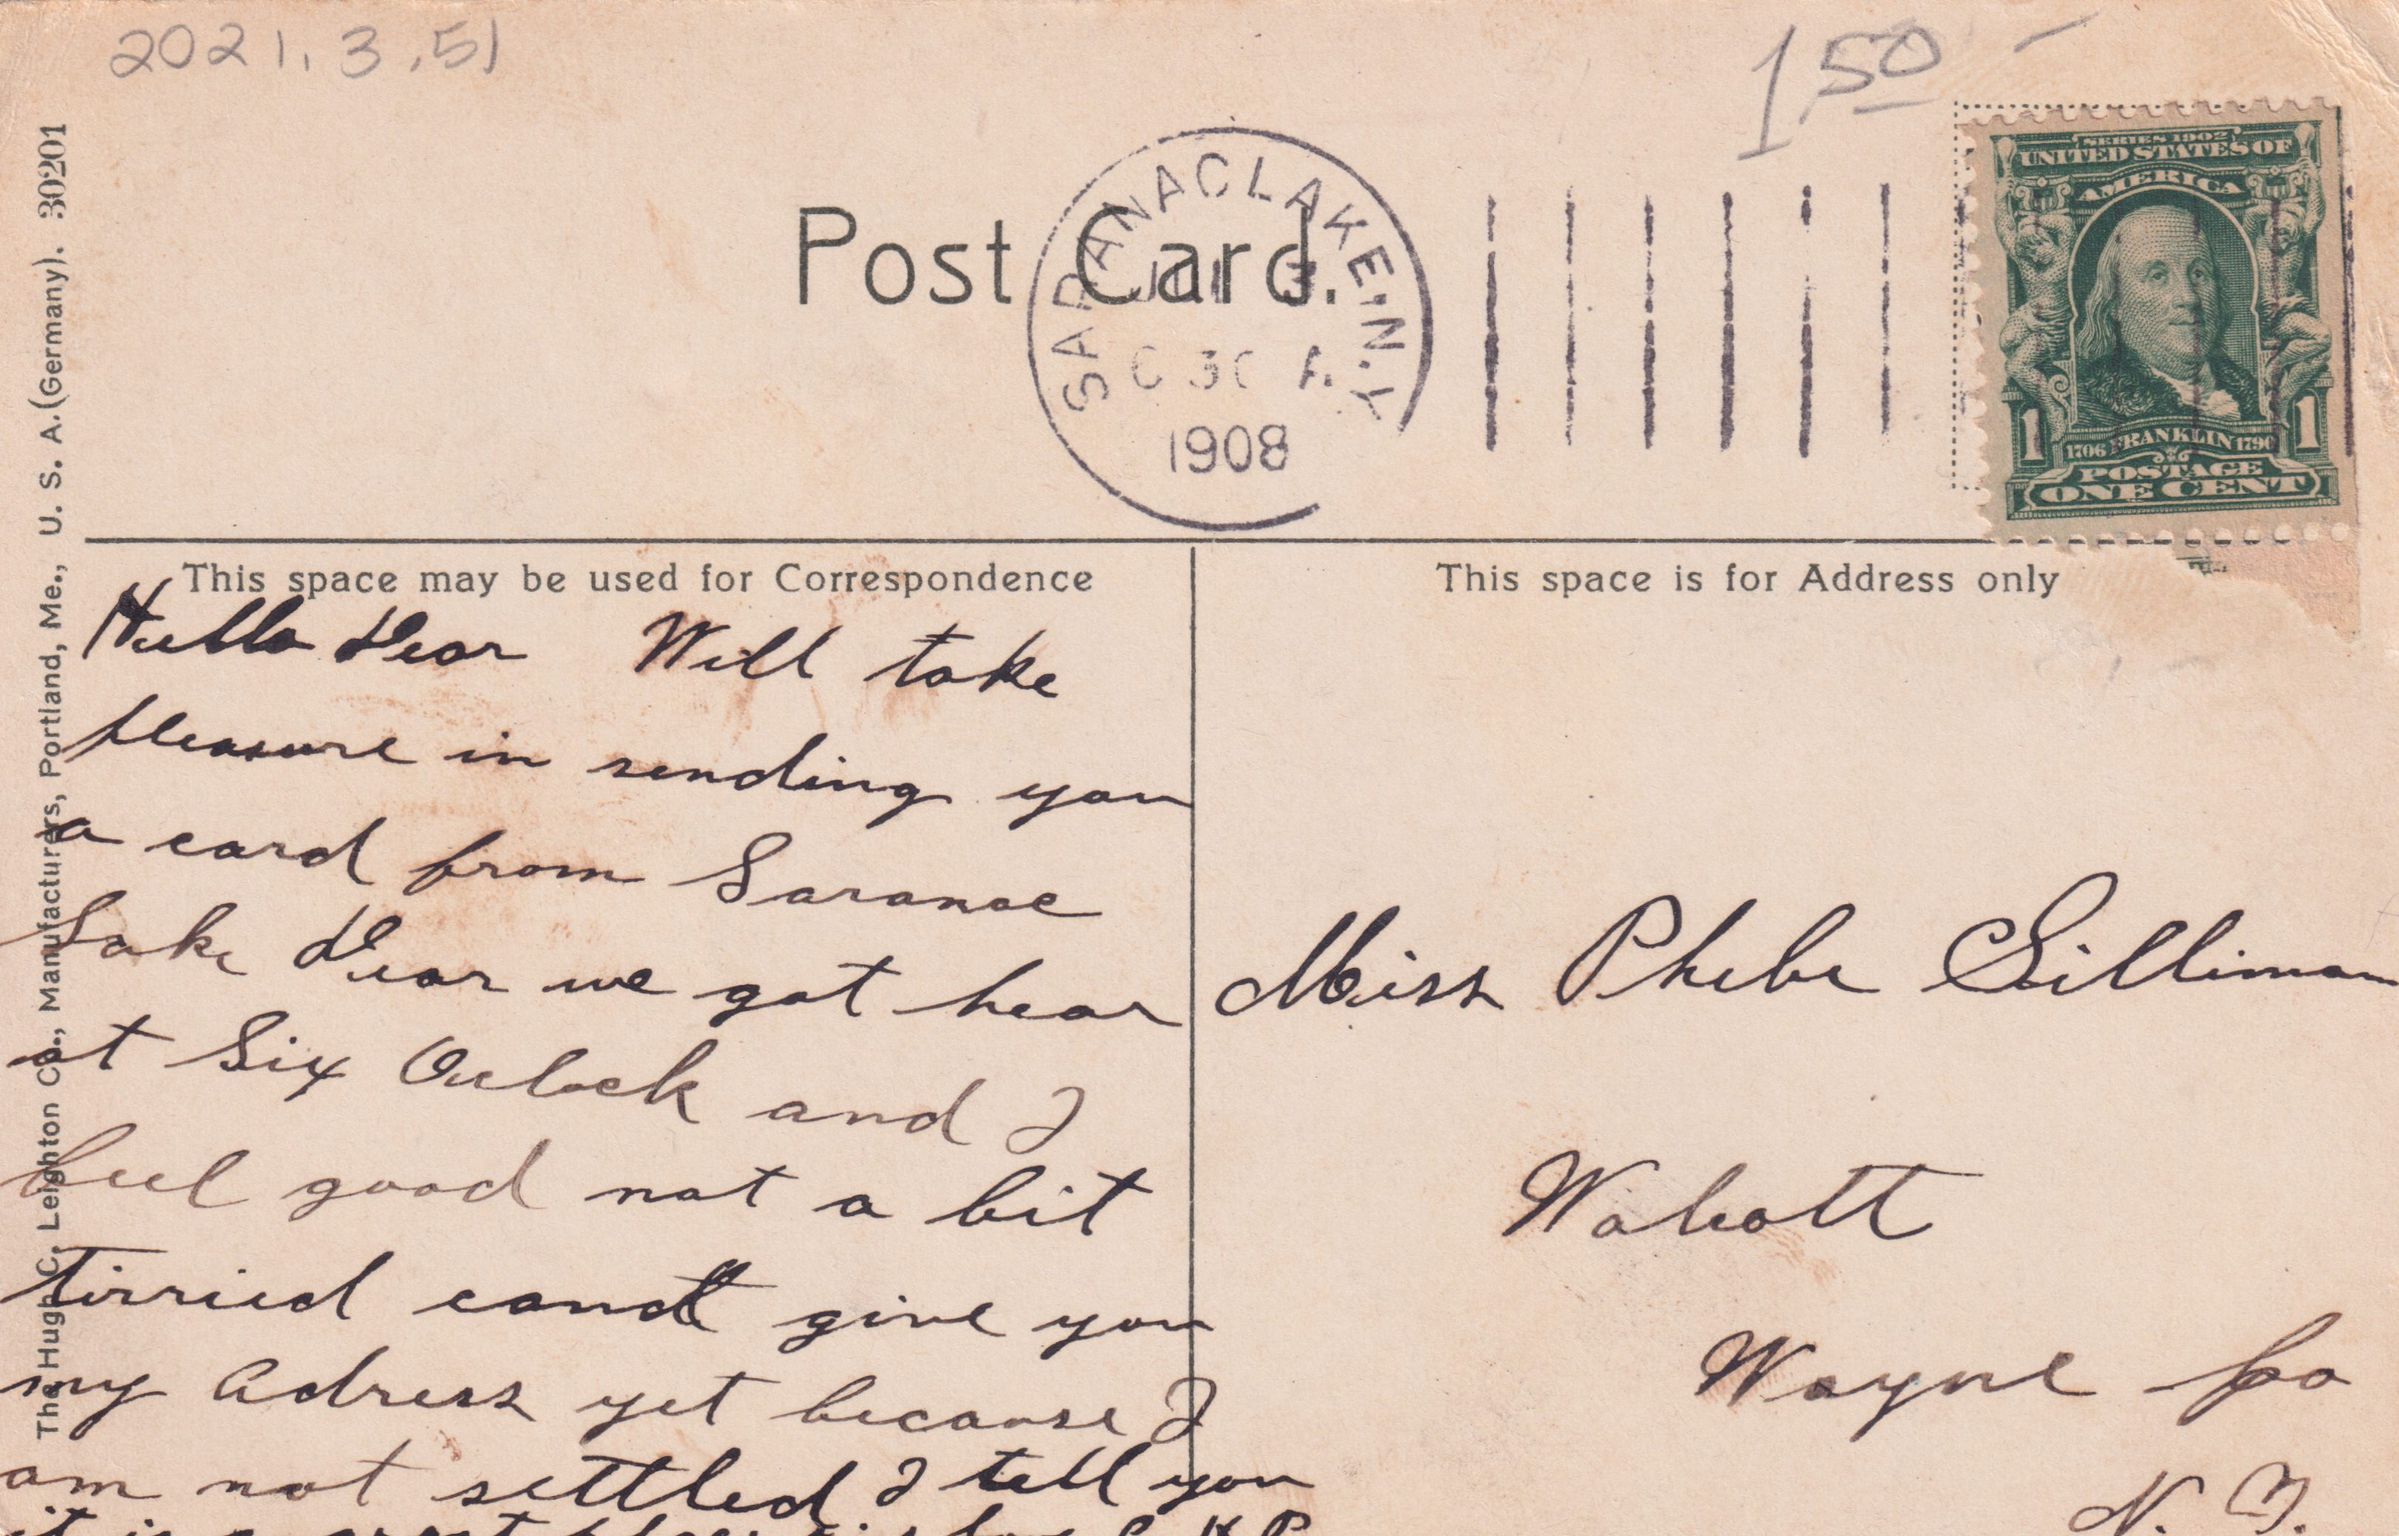 2021.3.51
1.50
The Hugh C. Leighton Co., Manufacturers, Portland, Me., U. S. A. (Germany). 30201
Post Card.
SARANAC LAKE, N.Y.
1908
SERIES 1902
UNITED STATES OF
AMERICA
1 1706 FRANKLIN 1790 1
POSTAGE
ONE CENT
This space may be used for Correspondence
Hello Dear Will take
pleasure in sending you
a card from Saranac
Lake Dear we got hear
at Six Oclock and I
feel good not a bit
tirried candt give you
my Adress yet because I
am not settled I tell you
it is a great place
This space is for Address only
Miss Phebe Silliman
Wolcott
Wayne Co
N. Y.